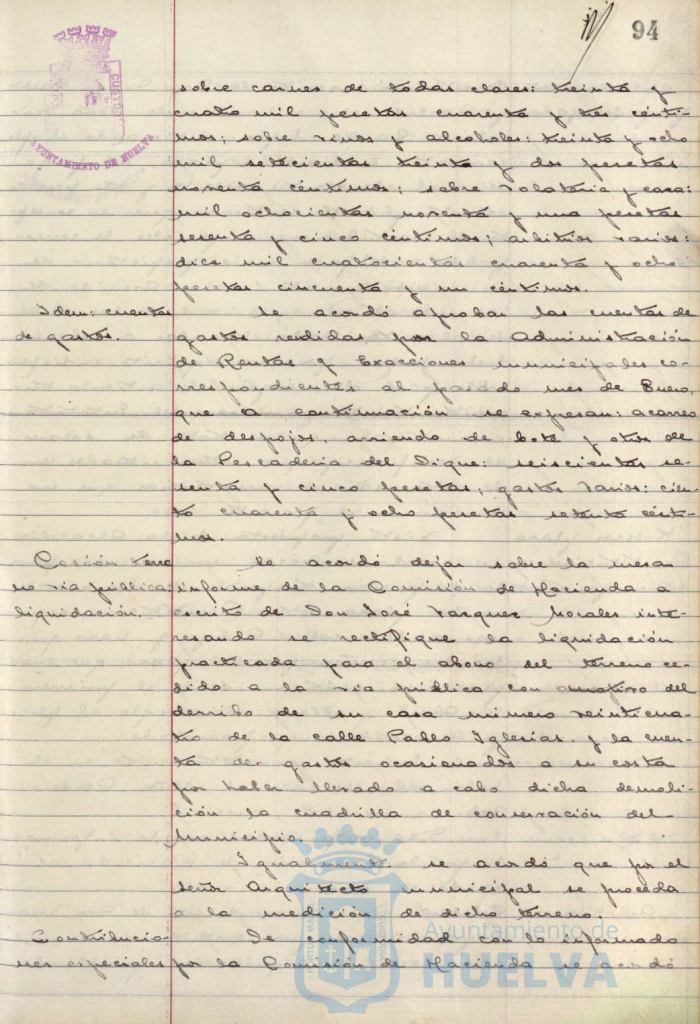 94
CUSTOS
AYUNTAMIENTO DE HUELVA
sobre carnes de todas clases: treinta y
cuatro mil pesetas cuarenta y tres cénti-
mos; sobre vinos y alcoholes: treinta y ocho
mil setecientas treinta y dos pesetas
noventa céntimos; sobre volateria y caza:
mil ochocientas noventa y una pesetas
sesenta y cinco céntimos; arbitrios varios:
diez mil cuatrocientas cuarenta y ocho
pesetas cincuenta y un céntimos.
Idem: cuentas
de gastos.
Se acordó aprobar las cuentas de
gastos rendidas por la Administración
de Rentas y Exacciones municipales co-
rrespondientes al pasado mes de Enero,
que a continuación se expresan: acarreo
de despojos, arriendo de bote y otros de
la Pescaderia del Dique: seiscientas se-
senta y cinco pesetas; gastos varios: cien-
to cuarenta y ocho pesetas setenta cénti-
mos.
Cesión terre
no via pública:
liquidación.
Se acordó dejar sobre la mesa
informe de la Comisión de Hacienda a
escrito de Don José Vazquez Morales inte-
resando se rectifique la liquidación
practicada para el abono del terreno ce-
dido a la via pública con motivo del
derribo de su casa número veinticua-
tro de la calle Pablo Iglesias y la cuen-
ta de gastos ocasionados a su costa
por haber llevado a cabo dicha demoli-
ción la cuadrilla de conservación del
Municipio.
Igualmente se acordó que por el
señor Arquitecto municipal se proceda
a la medición de dicho terreno.
Contribucio-
nes especiales
De conformidad con lo informado
por la Comisión de Hacienda se acordó
Ayuntamiento de
HUELVA